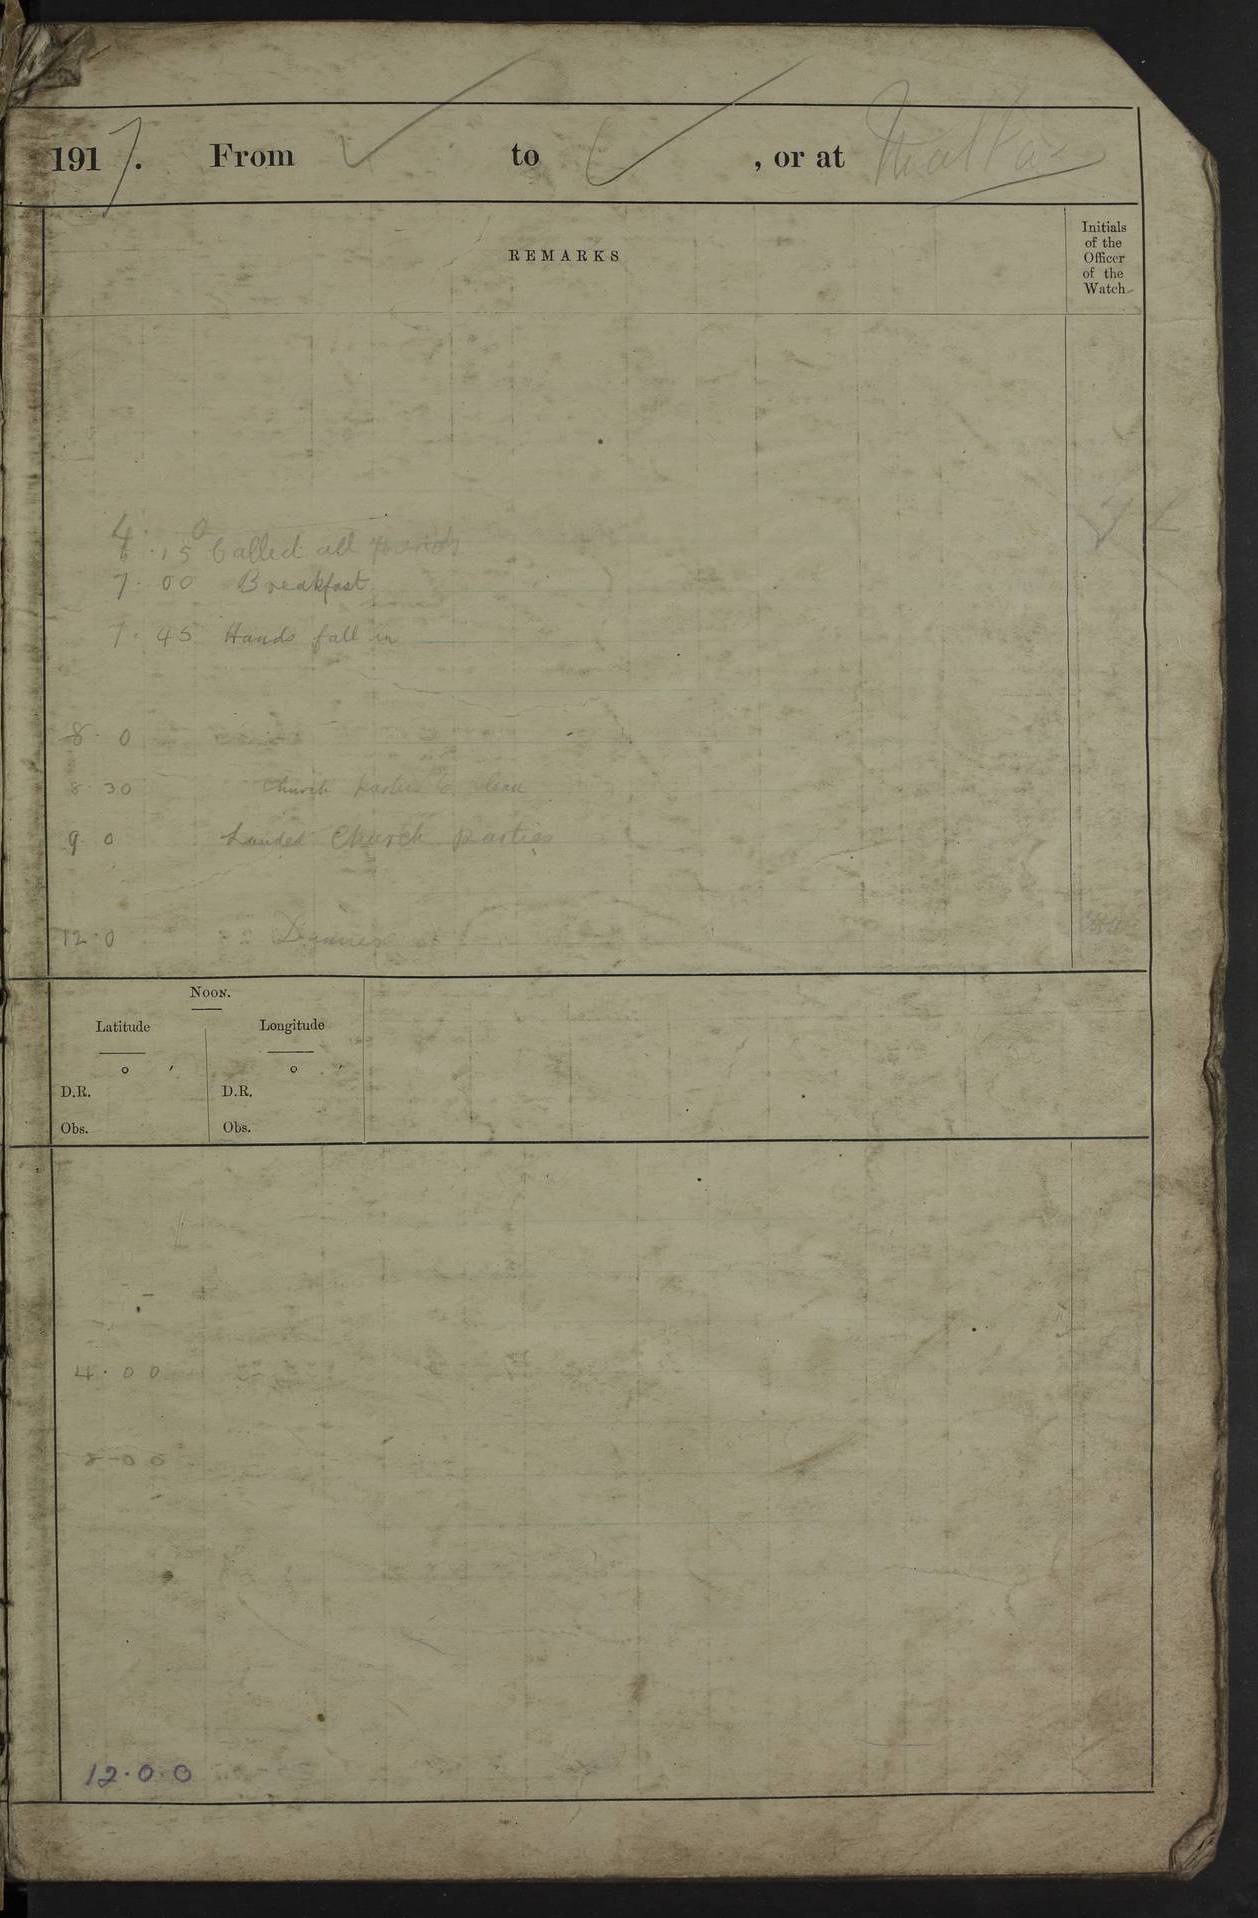 1917. From to , or at Malta
REMARKS
Initials
of the
Officer
of the
Watch
Called all Hands
7.00 Breakfast
7.45 Hands fall in
8.0
8 30 Church Parties to clean
9 0 Landed Church Parties
12.0
NOON.
Latitude Longitude
° ′ ° ′
D.R. D.R.
Obs. Obs.
4.00
8-00
12.0.0